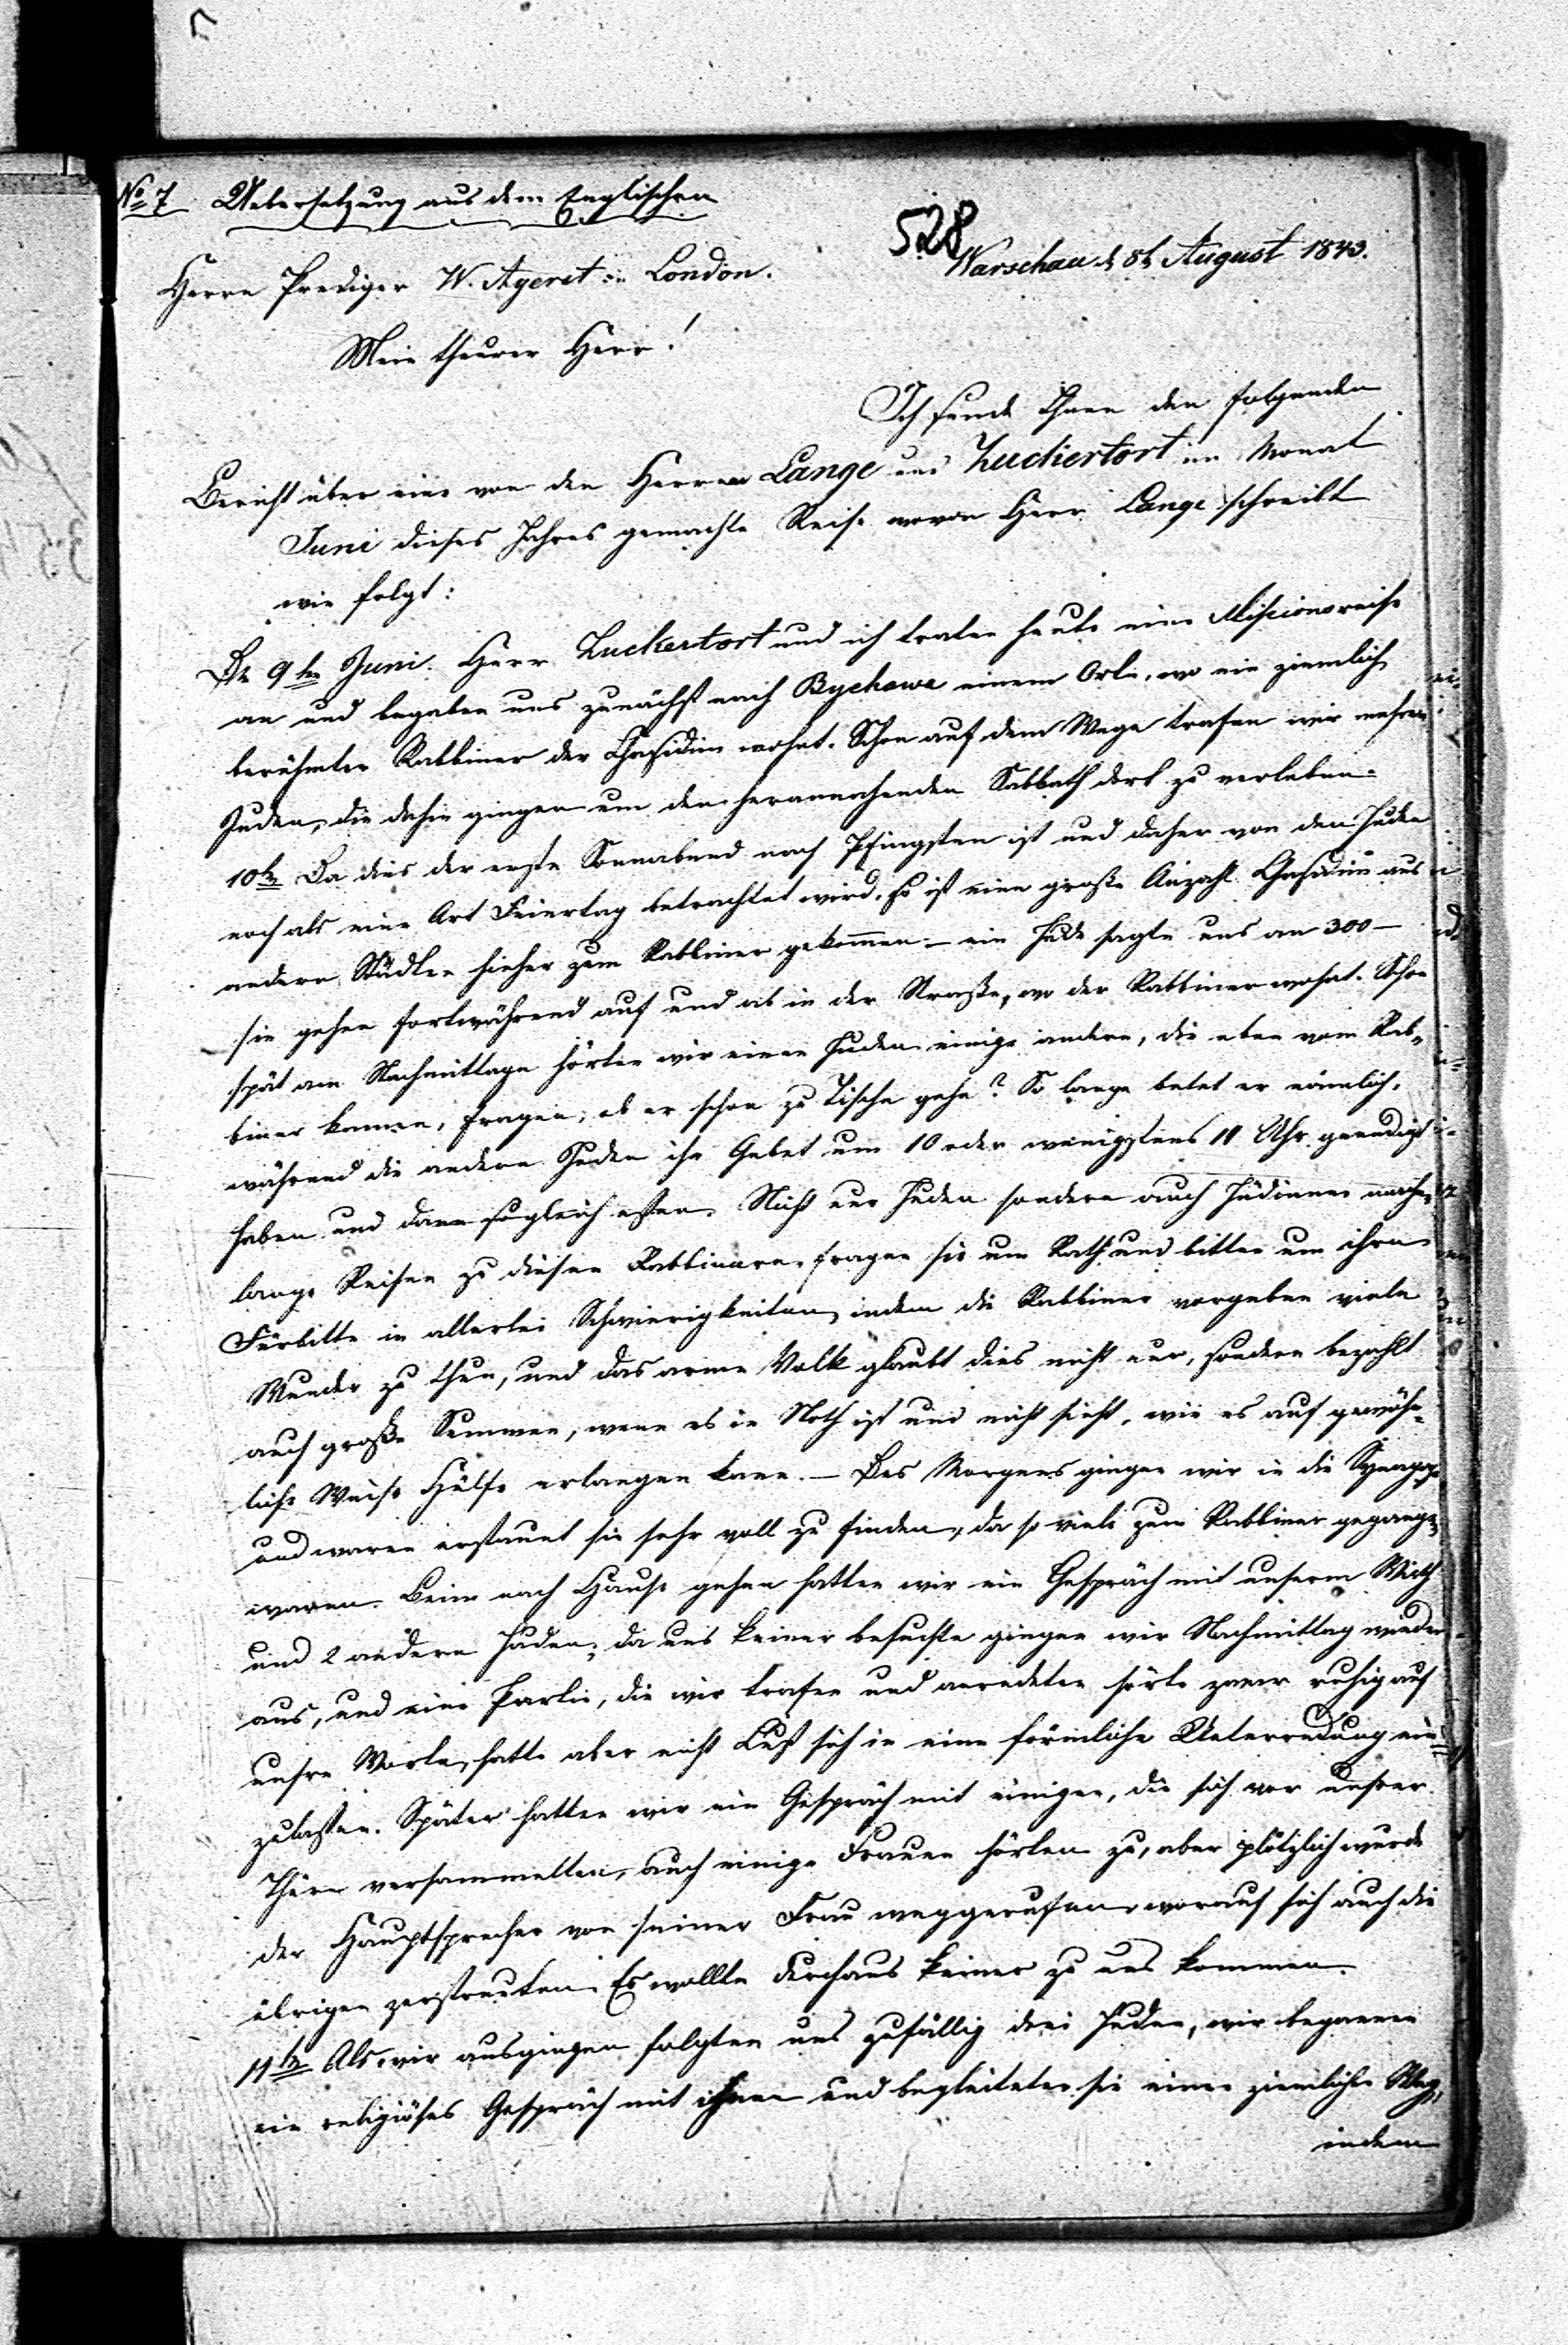 No 7 Uebersetzung aus dem Englischen
528
Warschau d 8t August 1843.
Herrn Prediger W. Ayerst in London.
Mein theurer Herr!
Ich sende Ihnen den folgenden
Bericht über eine von den Herren Lange und Zuckertort im Monat
Juni dieses Jahres gemachte Reise wovon Herr Lange schreibt
wie folgt:
Dn 9ten Juni. Herr Zuckertort und ich traten heute eine Missionsreise
an und begaben uns zunächst nach Bychawa einem Orte, wo ein ziemlich
berühmter Rabbiner der Chasidim wohnt. Schon auf dem Wege trafen wir mehrere
Juden, die dahin gingen um den herannahenden Sabbath dort zu verleben.
10ten Da dies der erste Sonnabend nach Pfingsten ist und daher von den Juden
noch als eine Art Feiertag betrachtet wird. So ist eine große Anzahl Chasidim aus
andern Städten hieher zum Rabbiner gekommen – ein Jude sagte uns an 300 –
sie gehen fortwährend auf und ab in der Straße, wo der Rabbiner wohnt. Schon
spät am Nachmittage hörten wir einen Juden einige andere, die eben vom Rab„
biner kamen, fragen, ob er schon zu Tische gehe? So lange betet er nämlich,
während die andern Juden ihr Gebet um 10 oder wenigstens 11 Uhr geendigt
haben und dann sogleich essen. Nicht nur Juden sondern auch Jüdinnen machen
lange Reisen zu diesen Rabbinern, fragen sie um Rath und bitten um ihre
Fürbitte in allerlei Schwierigkeiten, indem die Rabbiner vorgeben viele
Wunder zu thun, und das arme Volk glaubt dies nicht nur, sondern bezahlt
auch große Summen, wenn es in Noth ist und nicht sieht, wie es auf gewöhn„
liche Weise Hülfe erlangen kann. – Des Morgens gingen wir in die Synagoge
und waren erstaunt sie sehr voll zu finden, da so viele zum Rabbiner gegangen
waren. Beim nach Hause gehen hatten wir ein Gespräch mit unserm Wirth
und 2 andern Juden; da uns keiner besuchte gingen wir Nachmittag wieder
aus, und eine Partie, die wir trafen und anredeten hörte zwar ruhig auf
unsre Worte, hatte aber nicht Lust sich in eine förmliche Unterredung ein=
zulassen. Später hatten wir ein Gespräch mit einigen, die sich vor unsrer
Thüre versammelten, auch einige Frauen hörten zu, aber plötzlich wurde
der Hauptsprecher von seiner Frau weggerufen, worauf sich auch die
übrigen zerstreuten. Es wollte durchaus keiner zu uns kommen.
11ten Als wir ausgingen folgten uns zufällig drei Juden, wir begannen
ein religiöses Gespräch mit ihnen und begleiteten sie einen ziemlichen Weg,
indem